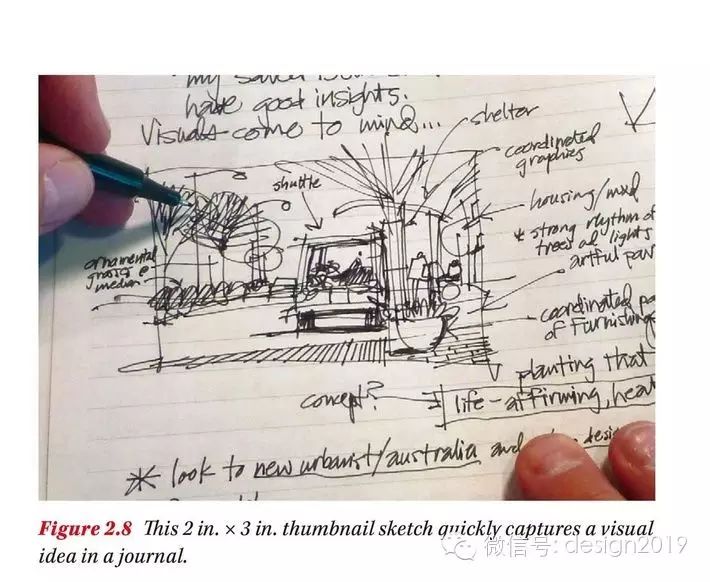 my
have good insights.
Visuals come to mind...
shelter
coordinated
graphics
shuttle
housing/mxd
* strong rhythm of
trees and lights
artful pav
ornamental
grasses @
median
coordinated pa
of Furnishing
planting that
concept?
life-affirming, hea
* look to new urbanist/australia and desi
Figure 2.8 This 2 in. × 3 in. thumbnail sketch quickly captures a visual
idea in a journal.
微信号: design2019